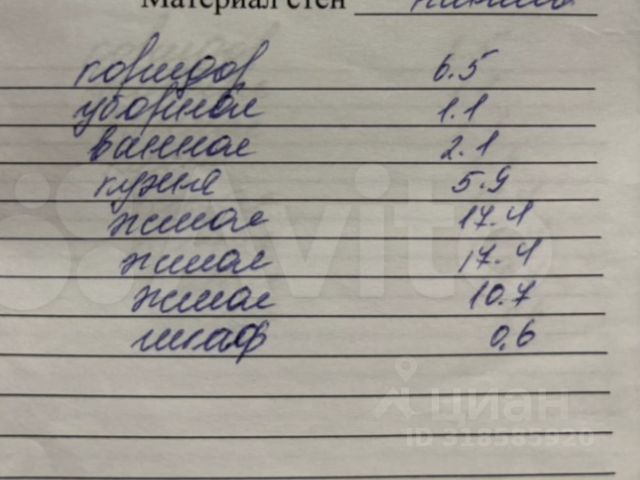 Материал стен
коридор 6.5
уборная 1.1
ванная 2.1
кухня 5.9
жилая 17.4
жилая 17.4
жилая 10.7
шкаф 0,6
Avito
циан
ID 318585920